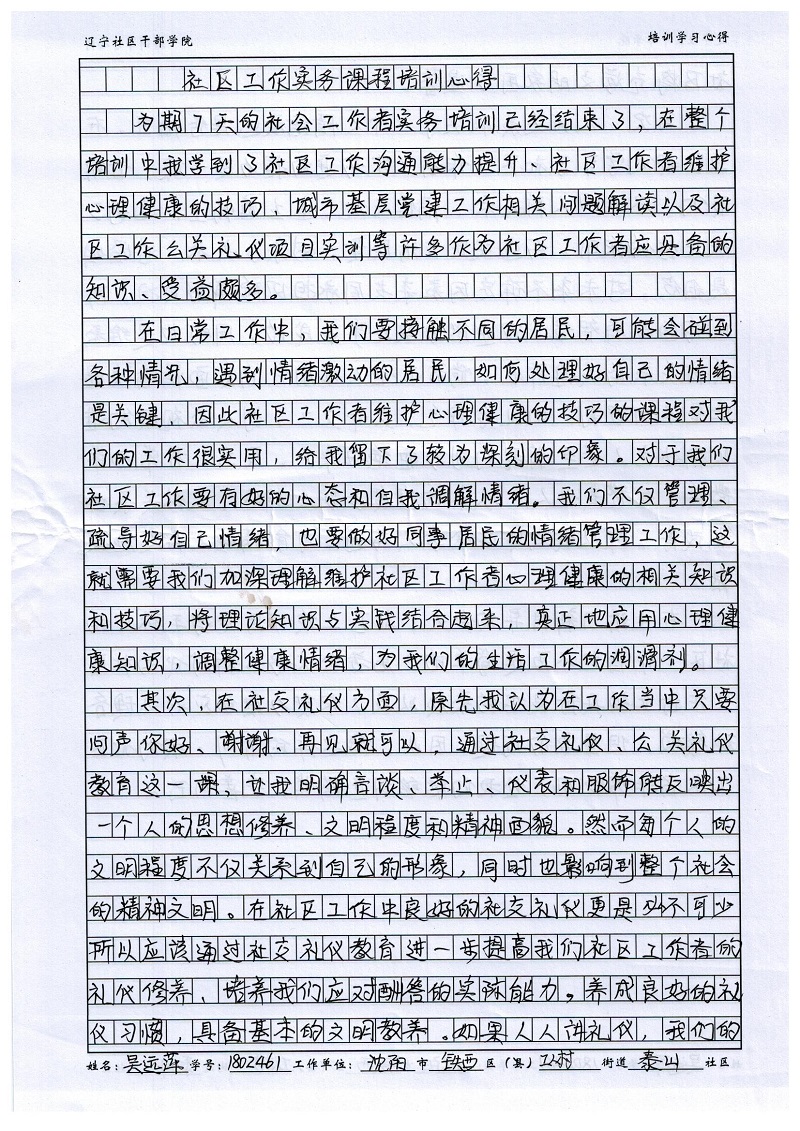 辽宁社区干部学院 培训学习心得
社区工作实务课程培训心得
为期7天的社会工作者实务培训已经结束了，在整个
培训中我学到了社区工作沟通能力提升、社区工作者维护
心理健康的技巧、城市基层党建工作相关问题解读以及社
区工作公关礼仪项目实训等许多作为社区工作者应具备的
知识、受益颇多。
在日常工作中，我们要接触不同的居民，可能会碰到
各种情况，遇到情绪激动的居民，如何处理好自己的情绪
是关键，因此社区工作者维护心理健康的技巧的课程对我
们的工作很实用，给我留下了较为深刻的印象。对于我们
社区工作要有好的心态和自我调解情绪。我们不仅管理、
疏导好自己情绪，也要做好同事居民的情绪管理工作，这
就需要我们加深理解维护社区工作者心理健康的相关知识
和技巧，将理论知识与实践结合起来，真正地应用心理健
康知识，调整健康情绪，为我们的生活工作的润滑剂。
其次，在社交礼仪方面，原先我认为在工作当中只要
问声你好、谢谢、再见就可以，通过社交礼仪、公关礼仪
教育这一课，让我明确言谈、举止、仪表和服饰能反映出
一个人的思想修养、文明程度和精神面貌。然而每个人的
文明程度不仅关系到自己的形象，同时也影响到整个社会
的精神文明。在社区工作中良好的社交礼仪更是必不可少
所以应该通过社交礼仪教育进一步提高我们社区工作者的
礼仪修养、培养我们应对酬答的实际能力。养成良好的礼
仪习惯，具备基本的文明教养。如果人人讲礼仪，我们的
姓名：吴远萍 学号：1802461 工作单位：沈阳市 铁西区（县）工人村 街道 泰山 社区